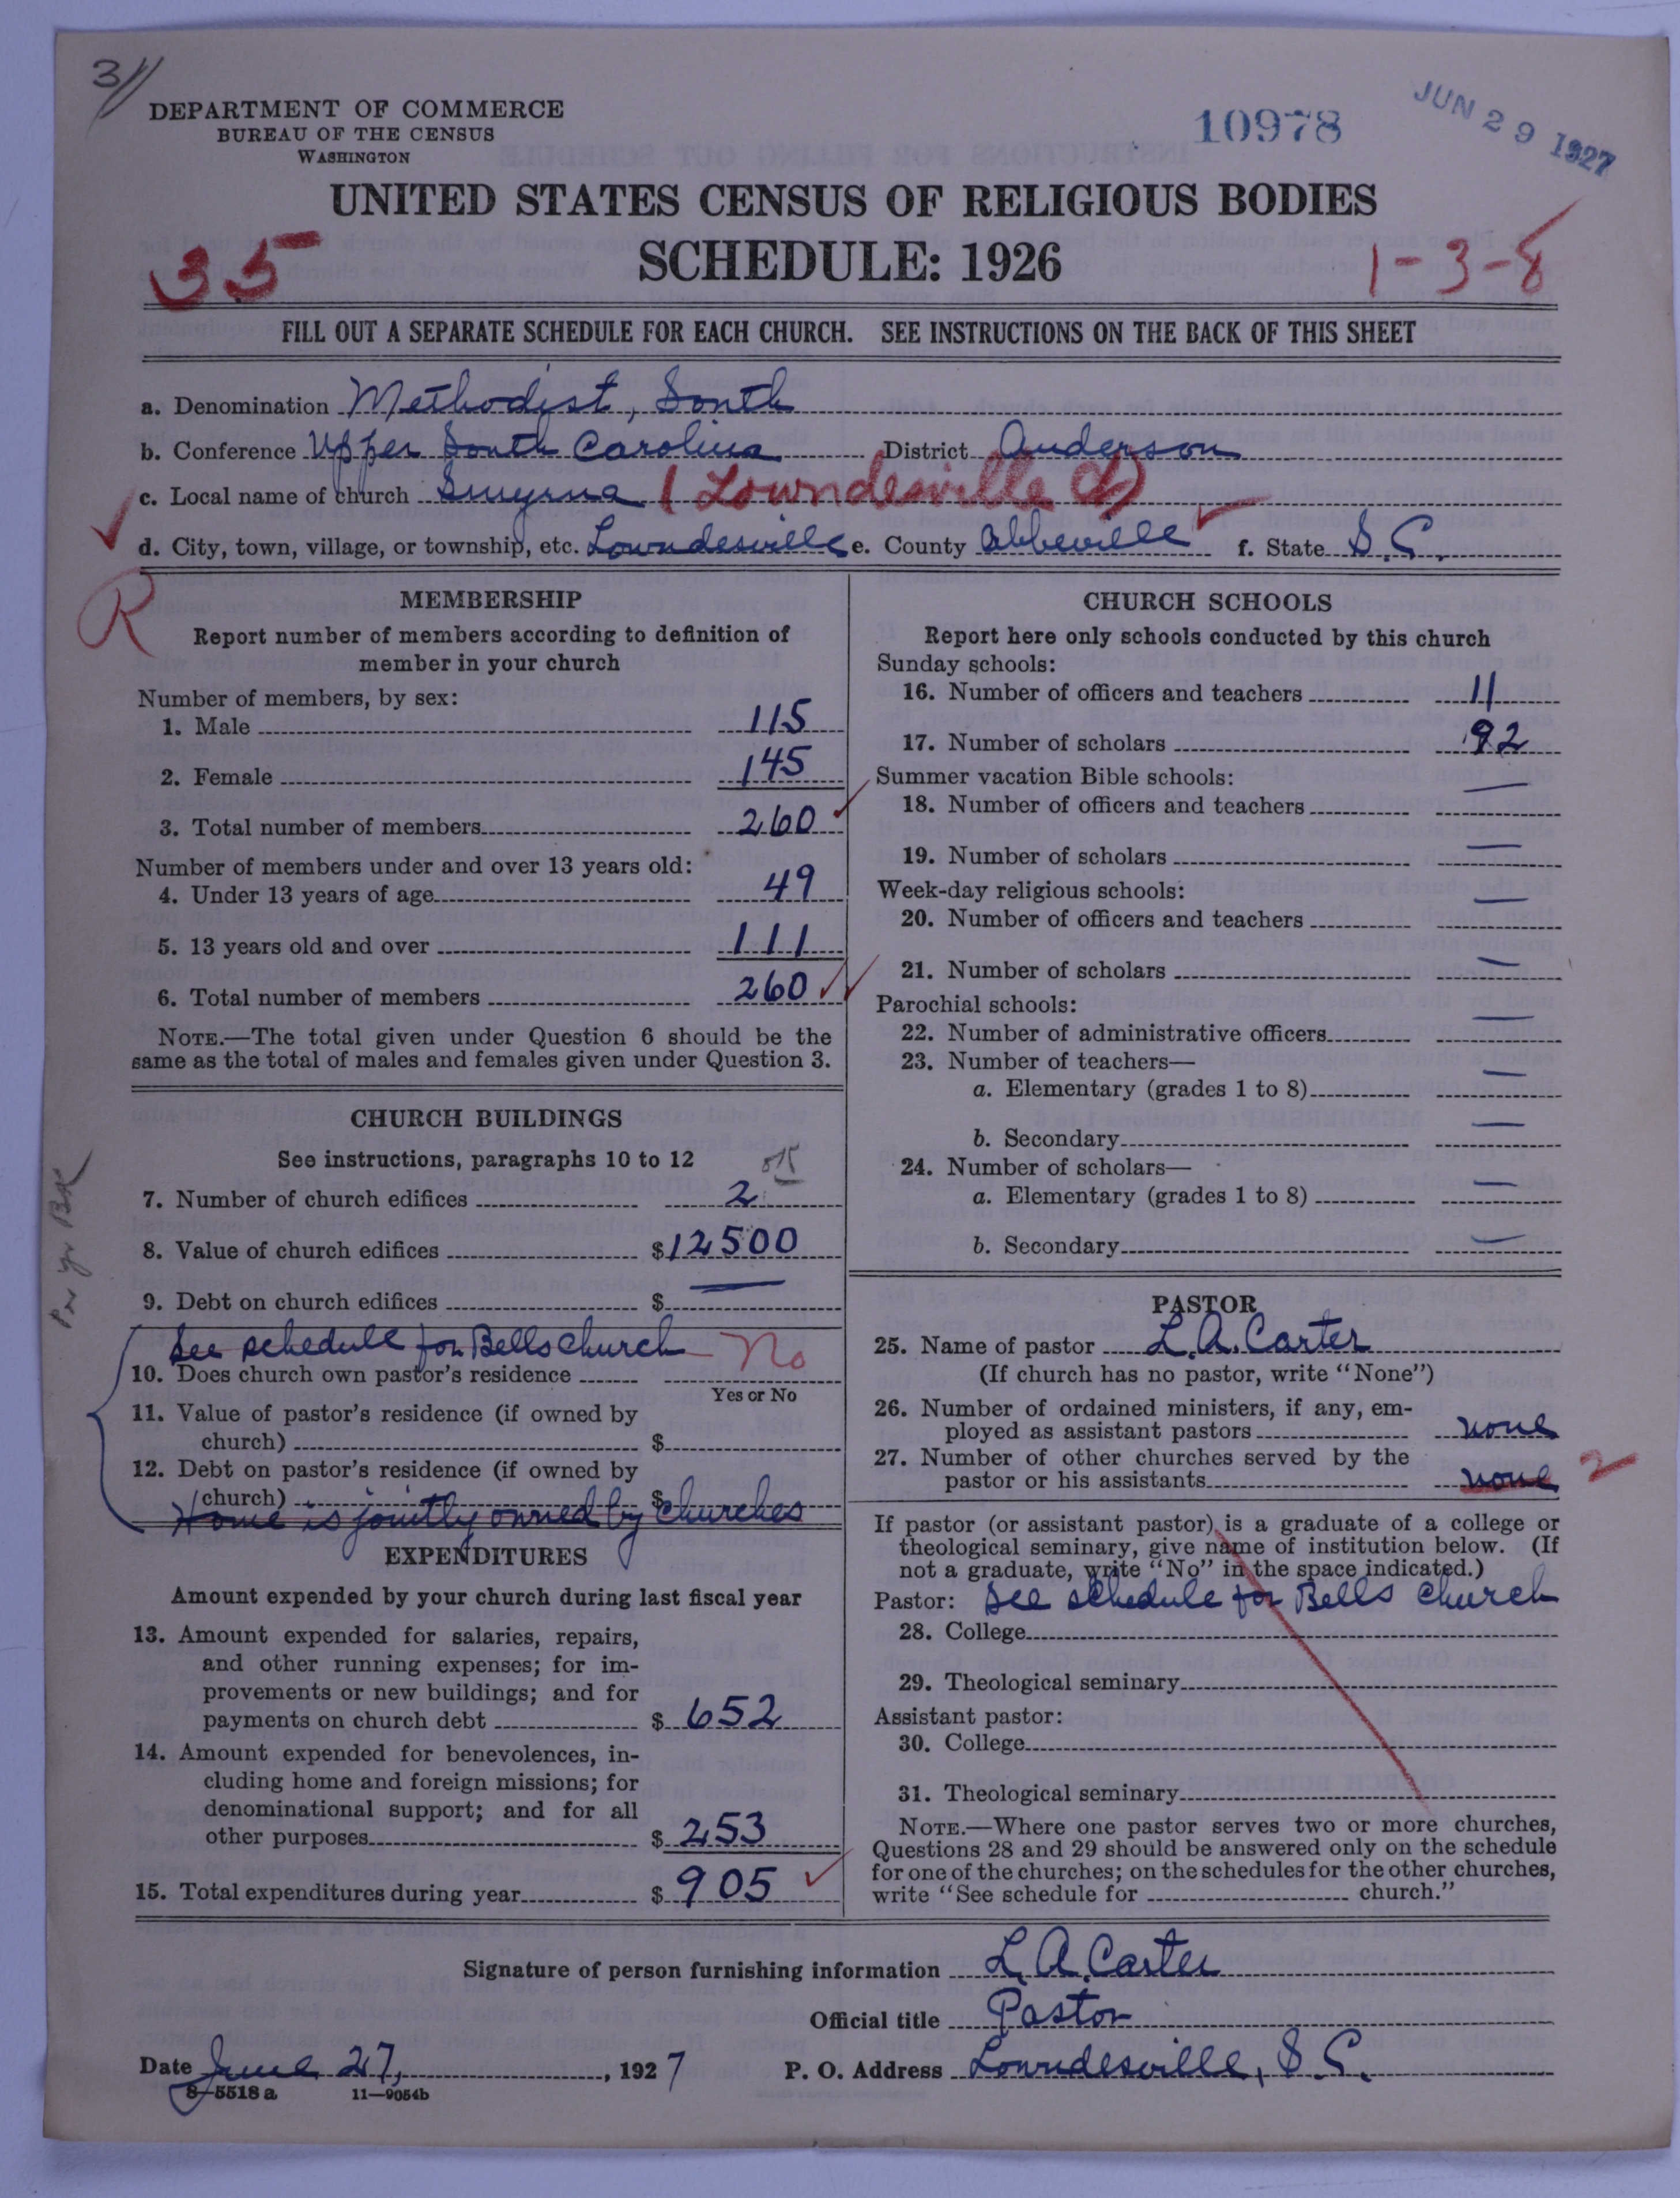 3//
DEPARTMENT OF COMMERCE
BUREAU OF THE CENSUS
WASHINGTON
10978
JUN 29 1927
UNITED STATES CENSUS OF RELIGIOUS BODIES
SCHEDULE: 1926
35
1-3-8
FILL OUT A SEPARATE SCHEDULE FOR EACH CHURCH. SEE INSTRUCTIONS ON THE BACK OF THIS SHEET
a. Denomination Methodist, South
b. Conference Upper South Carolina District Anderson
c. Local name of church Smyrna (Lowndesville )
d. City, town, village, or township, etc. Lowndesville e. County Abbeville f. State S.C.
R
MEMBERSHIP
Report number of members according to definition of
member in your church
Number of members, by sex:
1. Male 115
2. Female 145
3. Total number of members 260
Number of members under and over 13 years old:
4. Under 13 years of age 49
5. 13 years old and over 111
6. Total number of members 260
NOTE.—The total given under Question 6 should be the
same as the total of males and females given under Question 3.
CHURCH BUILDINGS
See instructions, paragraphs 10 to 12
7. Number of church edifices 2
8. Value of church edifices $12500
9. Debt on church edifices $ —
See schedule for Bells church No
10. Does church own pastor's residence
Yes or No
11. Value of pastor's residence (if owned by
church) $
12. Debt on pastor's residence (if owned by
church) $
Home is jointly owned by churches
Per yr BK
EXPENDITURES
Amount expended by your church during last fiscal year
13. Amount expended for salaries, repairs,
and other running expenses; for im-
provements or new buildings; and for
payments on church debt $ 652
14. Amount expended for benevolences, in-
cluding home and foreign missions; for
denominational support; and for all
other purposes $ 253
15. Total expenditures during year $ 905
CHURCH SCHOOLS
Report here only schools conducted by this church
Sunday schools:
16. Number of officers and teachers 11
17. Number of scholars 92
Summer vacation Bible schools:
18. Number of officers and teachers —
19. Number of scholars —
Week-day religious schools:
20. Number of officers and teachers —
21. Number of scholars —
Parochial schools:
22. Number of administrative officers —
23. Number of teachers—
a. Elementary (grades 1 to 8) —
b. Secondary —
24. Number of scholars—
a. Elementary (grades 1 to 8) —
b. Secondary —
PASTOR
25. Name of pastor L.A. Carter
(If church has no pastor, write "None")
26. Number of ordained ministers, if any, em-
ployed as assistant pastors none
27. Number of other churches served by the
pastor or his assistants none 2
If pastor (or assistant pastor) is a graduate of a college or
theological seminary, give name of institution below. (If
not a graduate, write "No" in the space indicated.)
Pastor: See schedule for Bells church
28. College
29. Theological seminary
Assistant pastor:
30. College
31. Theological seminary
NOTE.—Where one pastor serves two or more churches,
Questions 28 and 29 should be answered only on the schedule
for one of the churches; on the schedules for the other churches,
write "See schedule for church."
Signature of person furnishing information L.A. Carter
Official title Pastor
Date June 27, 1927 P. O. Address Lowndesville, S.C.
8-5518 a 11—9054b